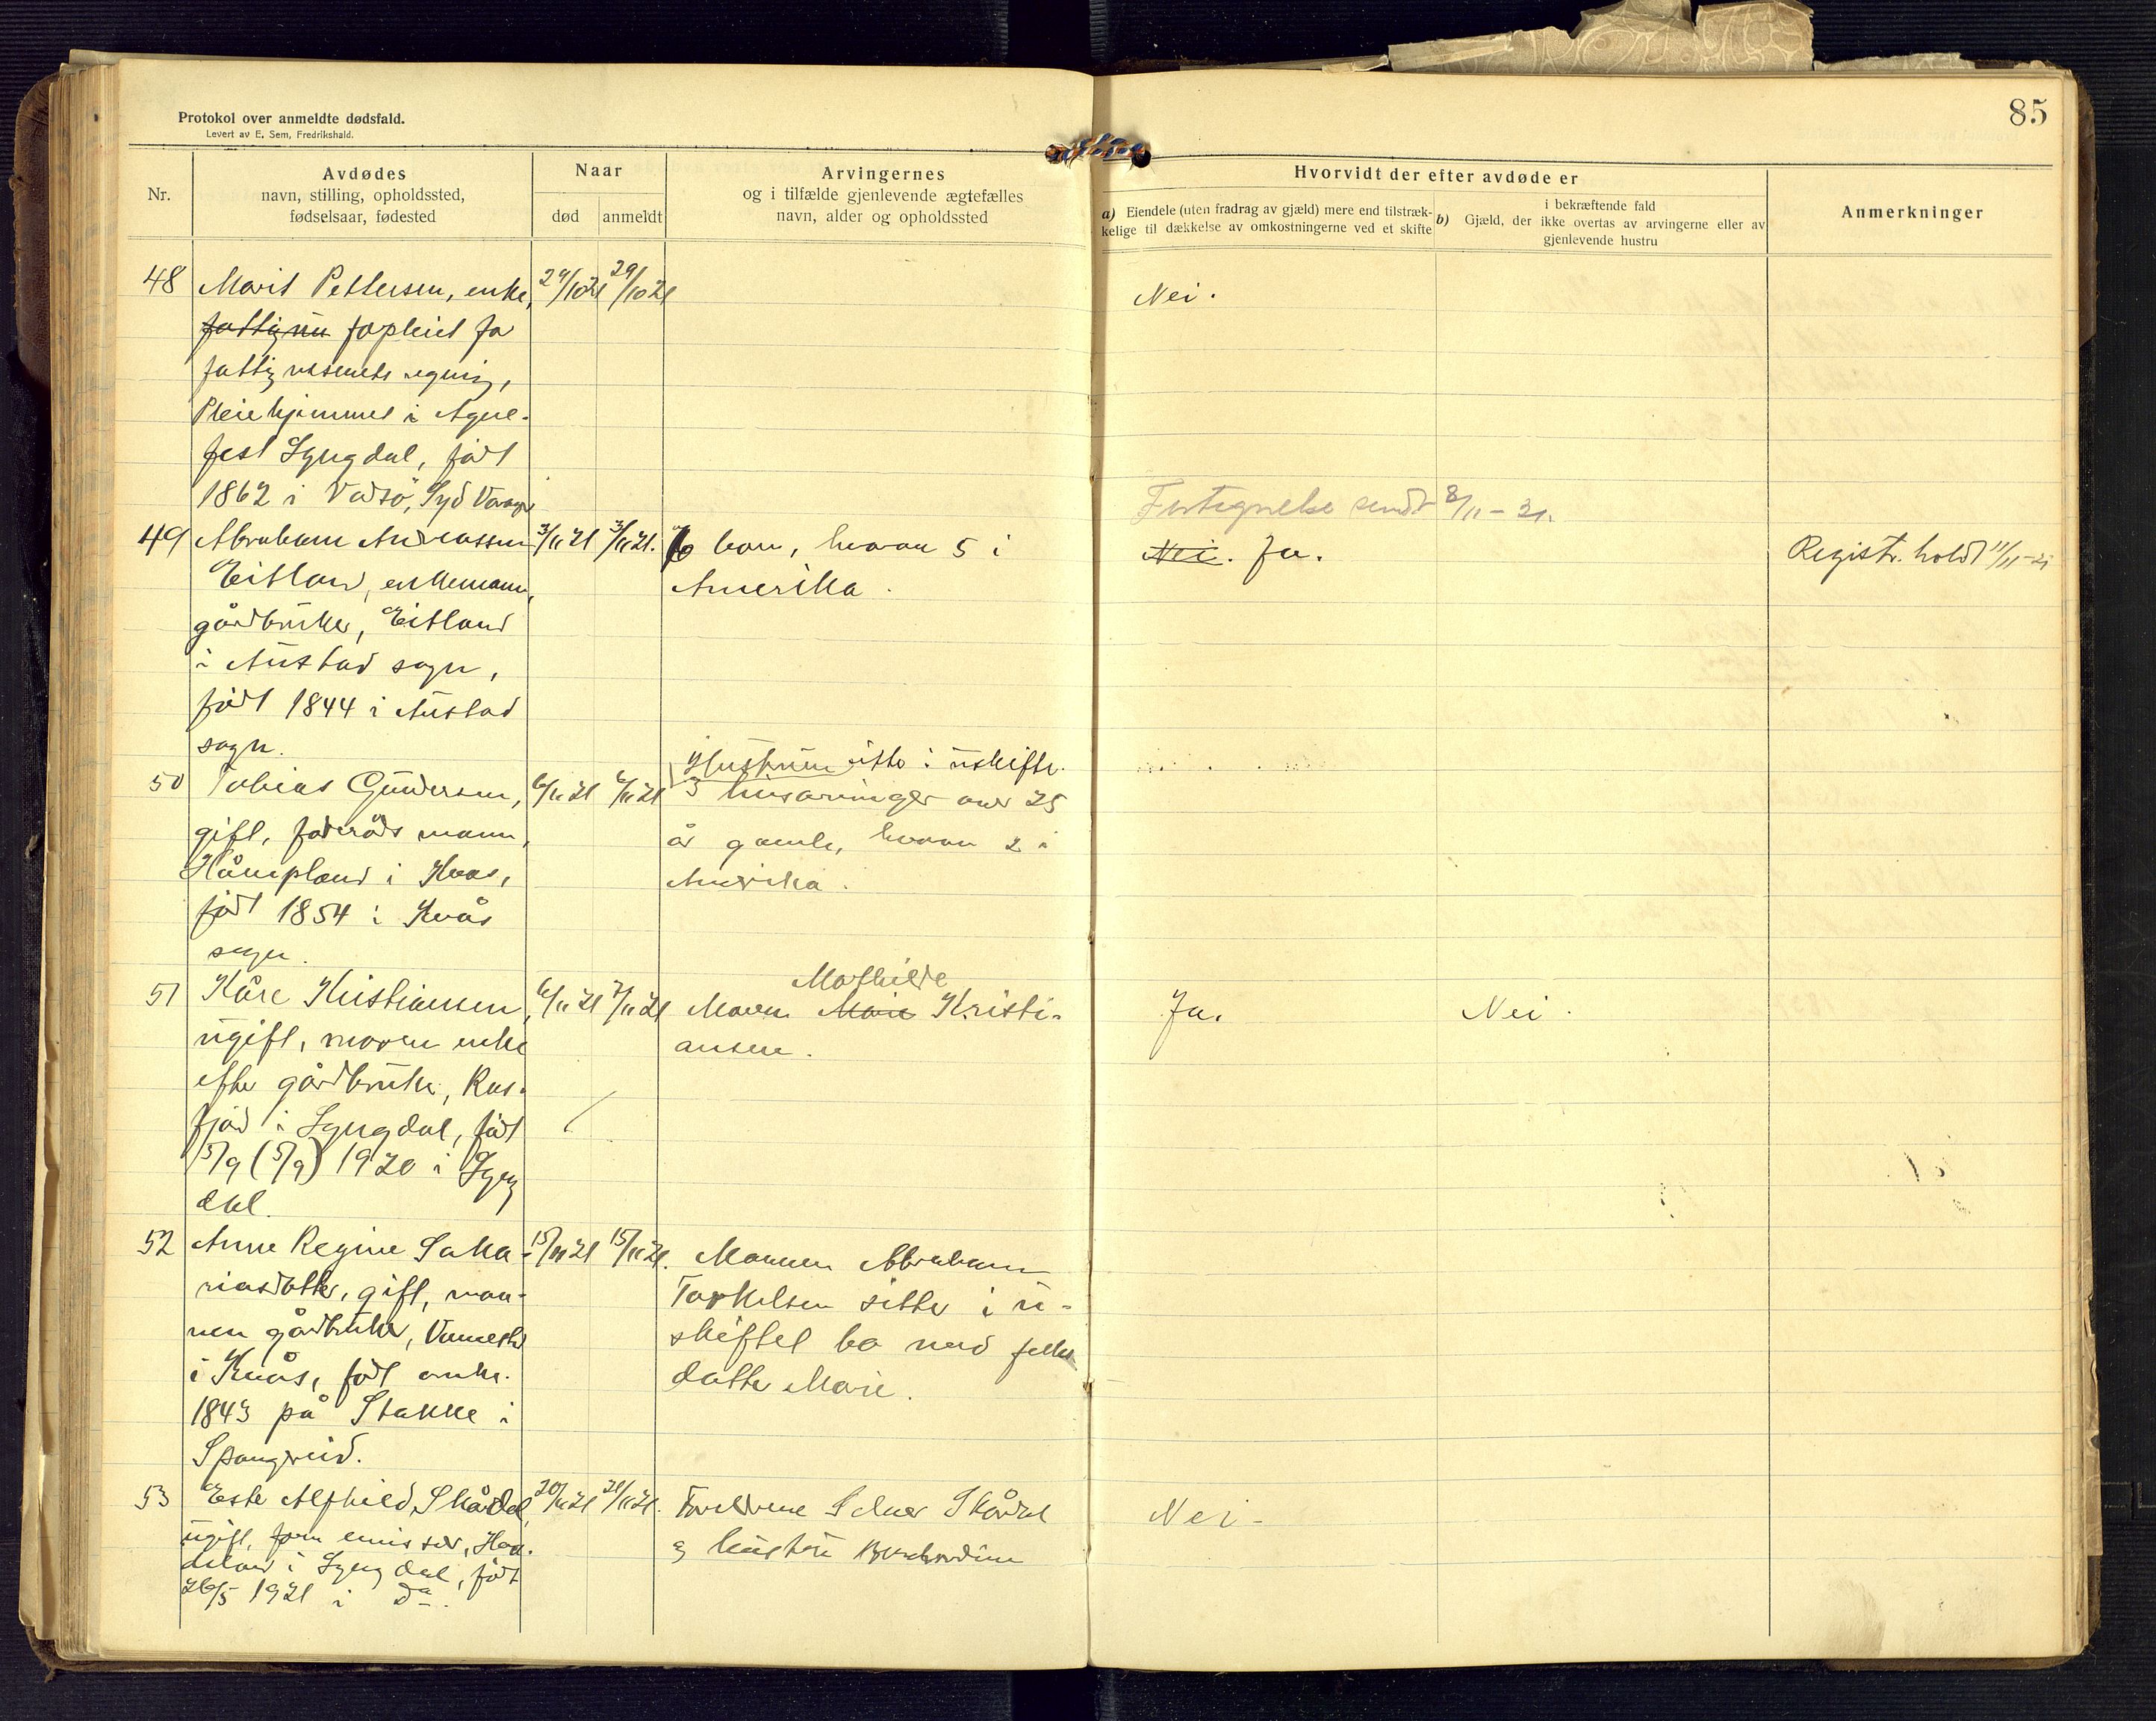 85
Protokol over anmeldte dødsfald.
Levert av E. Sem, Fredrikshald.
Nr.
Avdødes
navn, stilling, opholdssted,
fødselsaar, fødested
Naar
død
anmeldt
Arvingernes
og i tilfælde gjenlevende ægtefælles
navn, alder og opholdssted
Hvorvidt der efter avdøde er
a) Eiendele (uten fradrag av gjæld) mere end tilstræk-
kelige til dækkelse av omkostningerne ved et skifte
b) Gjæld, der
i bekræftende fald
ikke overtas av arvingerne eller av
gjenlevende hustru
Anmerkninger
48
Marit Pettersen, enke,
forpleiet for
fattigvæsenets regning,
Pleiehjemmet i Agne-
fest Lyngdal, født
1862 i Vadsö, Syd Varanger
29/10 21
Nei.
49
Abraham Andreassen
Eitland, enkemann,
gårdbruker, Eitland
i Austad sogn,
født 1844 i Austad
sogn.
3/11 21 3/11 21.
barn, hvorav 5 i
Amerika.
Fortegnelse sendt 8/11-21.
Nei. Ja.
Registr. holdt 11/11-21
50
Tobias Gundersen,
gift, føderådsmann,
i Kvås,
født 1854 i Kvås
sogn.
6/11 21 6/11 21
Hustruen sitter i uskifte.
3 livsarvinger over 25
år gamle, hvorav 2 i
Amerika.
51
Kåre Kristiansen,
ugift, moren enke
efter gårdbruker, Ros-
fjord i Lyngdal, født
5/9 (5/9) 1920 i Lyng
dal.
6/11 21 7/11 21
Mathilde
Moren Marie Kristi-
ansen.
Ja.
Nei.
52
Anne Regine Saka-
riasdatter, gift, man-
nen gårdbruker, Vemestad
i Kvås, født omkr.
1843 på Stakke i
Spangreid.
15/11 21 15/11 21.
Mannen Abraham
Torkelsen sitter i u-
skiftet bo med felles
datter Marie.
53
Ester Alfhild Skårdal,
ugift, faren emissær, Hau-
deland i Lyngdal, født
26/5 1921 i do.
20/11 21 21/11 21.
Foreldrene Selmer Skårdal
og hustru Berhardine
Nei.